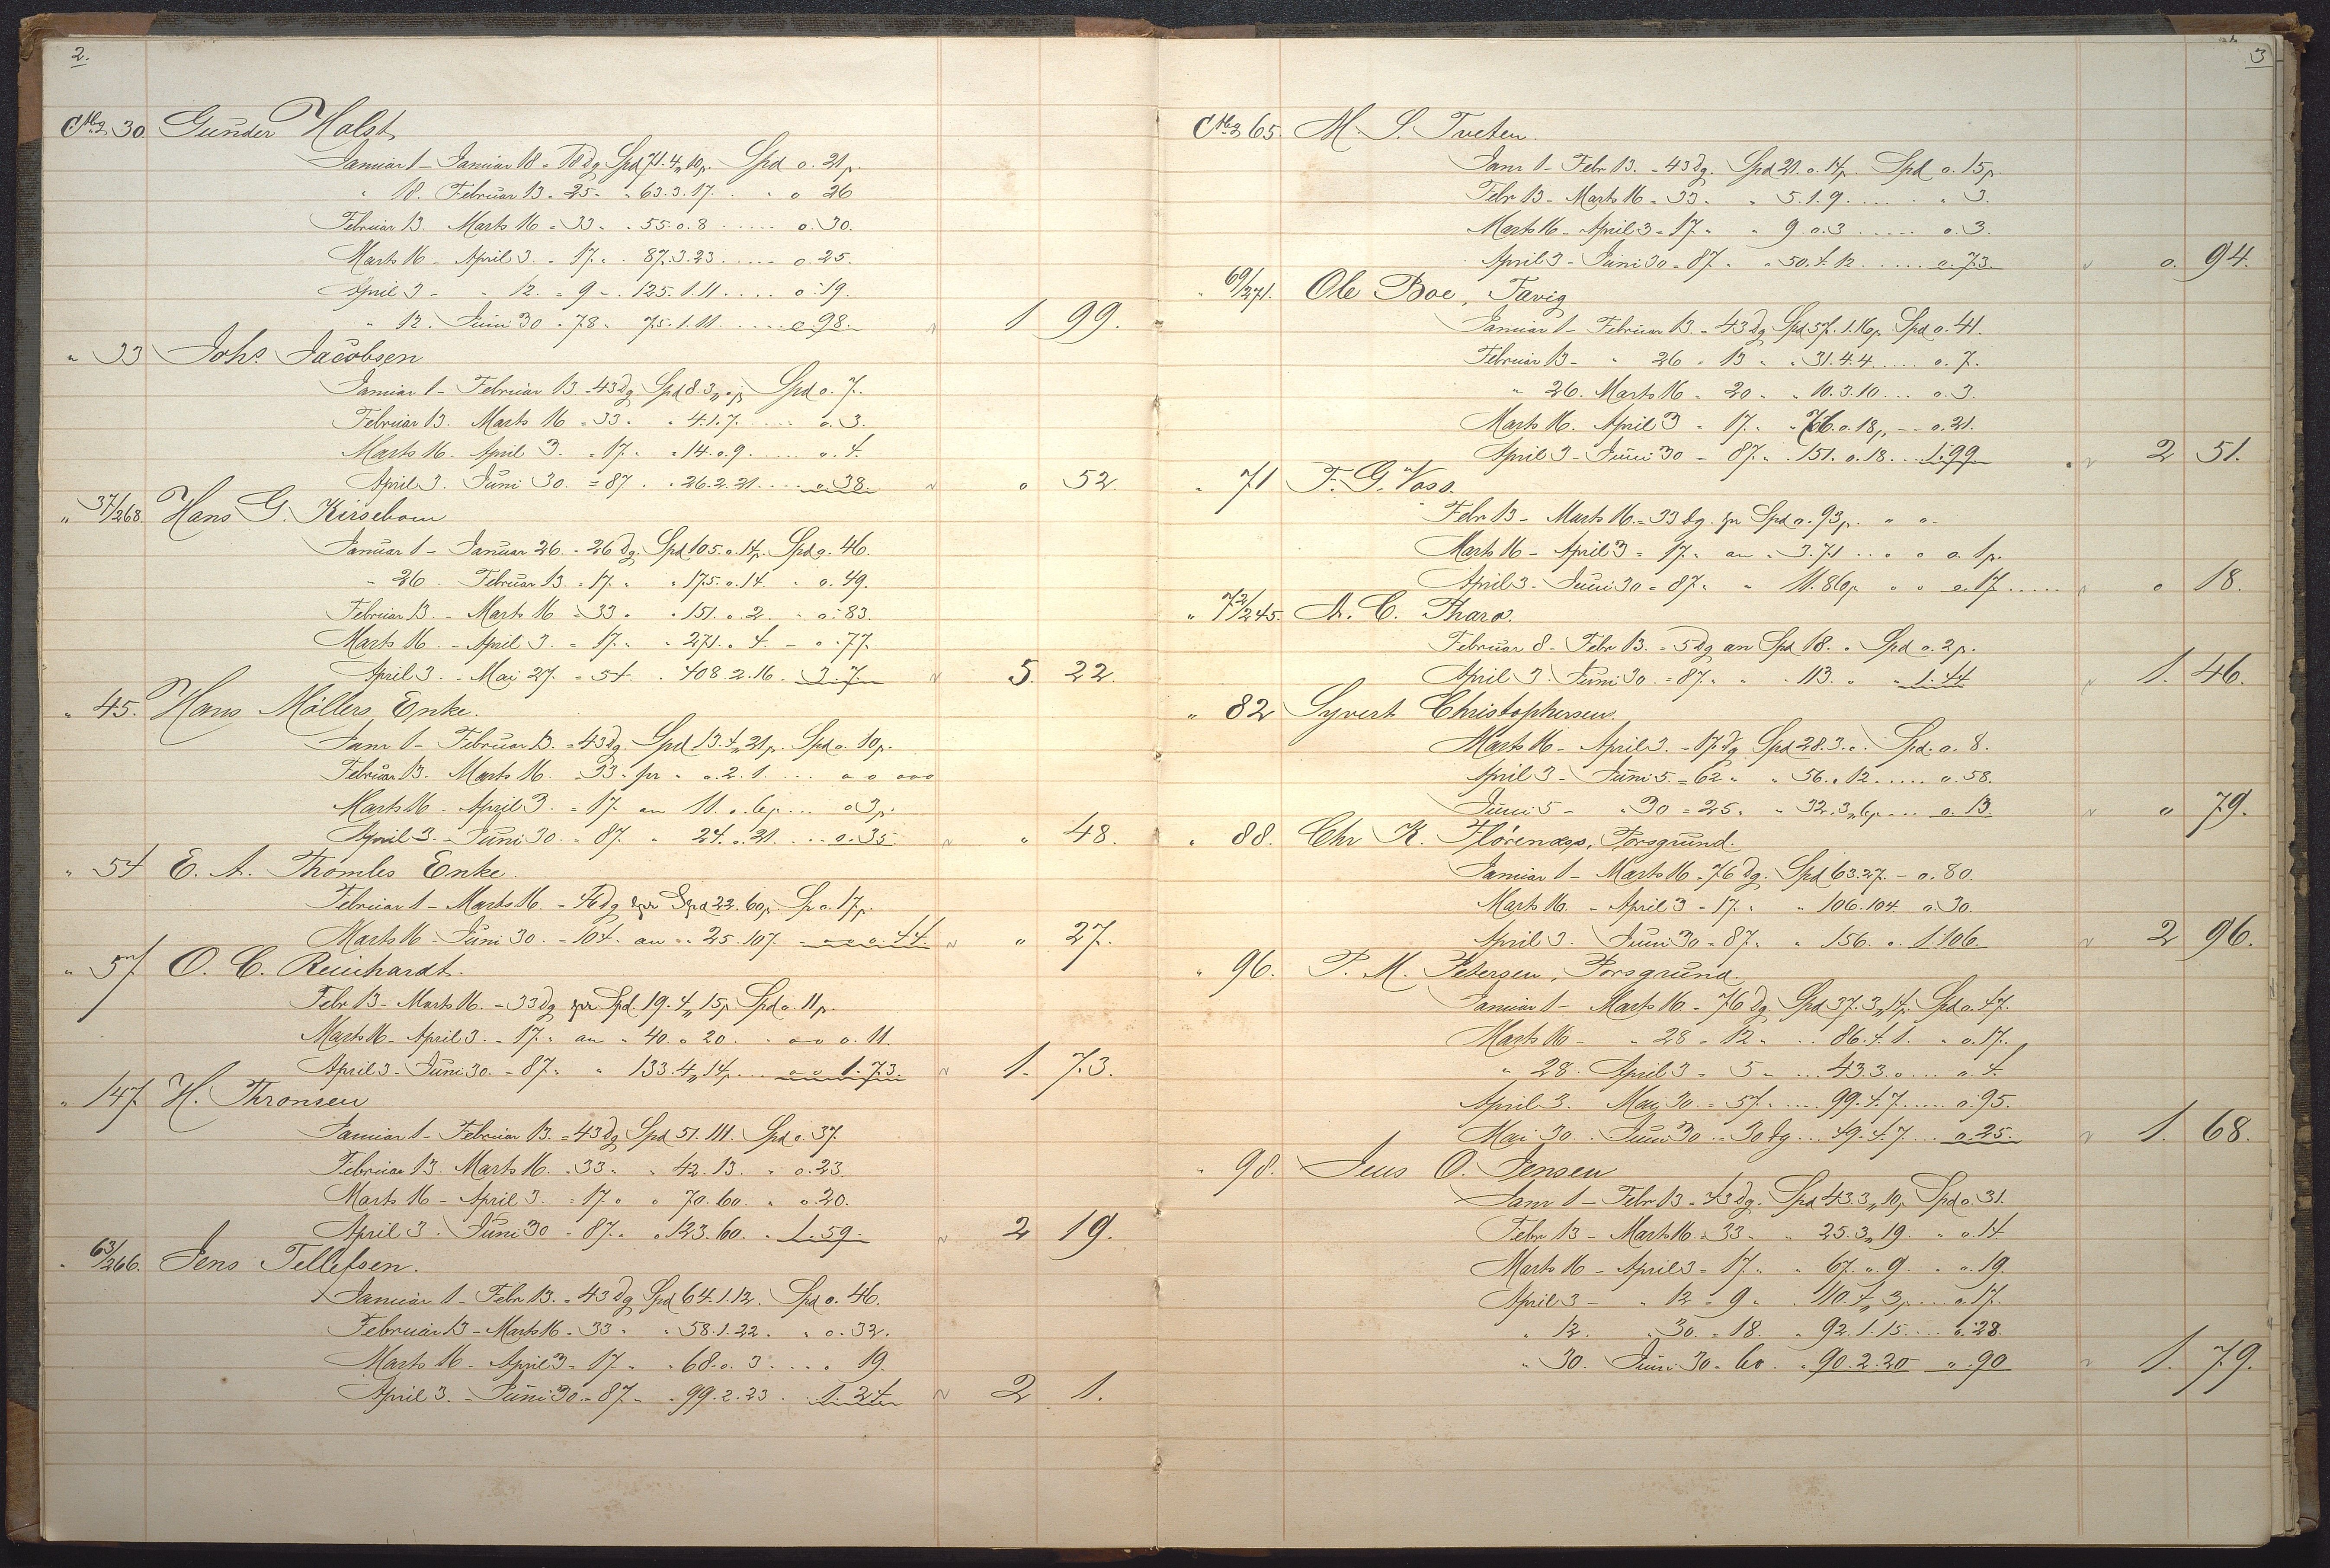 2.
No 30. Gunder Holst
Januar 1 - Januar 18 = 18 dg Spd 71. 4 „ 10 p. Spd o. 21 p.
" 18. Februar 13 = 25 " " 63. 3. 17. . " o 26
Februar 13. Marts 16 = 33 " " 55. o. 8 ..... o. 30.
Marts 16 - April 3. = 17. " . 87. 3. 23 ..... o. 25.
April 3 - " 12. = 9 " . 125. 1. 11 .... o. 19.
" 12. Juni 30 = 78 " 75. 1. 11. ..... o. 98. " 1 99.
" 33 Johs. Jacobsen
Januar 1 - Februar 13 = 43 dg Spd 8. 3 „ o p Spd o. 7.
Februar 13. Marts 16 = 33 " " 4. 1. 7. ..... o. 3.
Marts 16. April 3. = 17. " " 14. o. 9. ..... o. 4.
April 3. Juni 30. = 87. " 26. 2. 21. ... o. 38. " o 52.
" 37/268. Hans G. Kirsebom
Januar 1 - Januar 26. = 26 dg. Spd 105. o. 14 p. Spd o. 46.
" 26. Februar 13. = 17. " " 175. o. 14. " o. 49.
Februar 13. - Marts 16 = 33 " " 151. o. 2. - o. 83.
Marts 16. - April 3. = 17. " " 271. o. 4. - o. 77.
April 3. - Mai 27. = 54. " 408. 2. 16. 3. 7. " 5. 22.
" 45. Hans Möllers Enke.
Janr 1 - Februar 13. = 43 dg. Spd 13. 4 „ 21 p. Spd o. 10 p.
Februar 13. Marts 16. 33 " pr " o. 2. 1. ... o o ooo
Marts 16. April 3. = 17. an 11. o. 6 p. ... o 3 p.
April 3. - Juni 30. = 87. " 24. o. 21. ... o. 35 " " 48.
" 54 E. A. Thomles Enke.
Februar 1 - Marts 16. = dg pr Spd 22. 60 p. Sp o. 17 p.
Marts 16 - Juni 30. = 104. an " 25. 107. o. 44. " " 27.
" 57 O. C. Reinhardt.
Febr 13 - Marts 16. = 33 dg pr Spd. 19. 4 „ 15 p Spd o. 11 p.
Marts 16 - April 3. = 17. " an " 40. o 20. " o o o. 11.
April 3 - Juni 30. = 87. " " 133. 4 „ 14 p. ... 1. 73. " 1. 73.
" 147 H. Thronsen
Januar 1 - Februar 13. = 43 dg Spd 51. 111. Spd o. 37.
Februar 13. Marts 16. = 33 " " 42. 13. " o. 23.
Marts 16 - April 3. = 17. " " 70. 60. " o. 20.
April 3. Juni 30 = 87. " " 123. 60. " 1. 59. " 2 19.
" 63/266. Jens Tellefsen.
Januar 1 - Febr 13. = 43 dg Spd 64. 1. 12. Spd o. 46.
Februar 13 - Marts 16. = 33 " " 58. 1. 22. " o. 32.
Marts 16 - April 3 = 17. " " 68. o. 3 ... " 19.
April 3. - Juni 30. = 87. " " 99. 2. 23. . 1. 24. " 2 1.
3
No 65. M. S. Tveten.
Janr 1 - Febr 13. = 43 dg. Spd 21. o. 14 p. Spd o. 15 p.
Febr 13 - Marts 16 = 33 " " 5. 1. 9. .... " 3.
Marts 16 - April 3 = 17. " " 9 o. 3 ..... o. 3.
April 3 - Juni 30 = 87. " " 50. 4. 12. ..... o. 73. " o. 94.
" 69/271. Ole Boe, Tavig
Januar 1 - Februar 13. = 43 dg Spd 57. 1. 16 p. Spd o. 41.
Februar 13 - " 26 = 13 " " 31. 4. 4 ..... o. 7.
" 26. Marts 16 = 20 " " 10. 3. 10 ... o. 3.
Marts 16. April 3 = 17. " " 76. o. 18 „ -- o. 21.
April 3 - Juni 30 = 87. " 151. o. 18. .. 1. 99. " 2 51.
" 71 F. G. Voss.
Febr 13 - Marts 16. = 33 dg. pr Spd o. 93 p. " o -
Marts 16 - April 3 = 17. " an " 3. 71 .. o o o. 1 p.
April 3. - Juni 30 = 87. " " 11. 86 p " " o. 17. .... " o 18.
" 72/245. A. C. Tharo.
Februar 8 - Febr 13. = 5 dg an Spd 18. o Spd o. 2 p.
April 3. Juni 30. = 87. " " 113. " " 1. 44 " 1. 46.
" 82 Syvert Christophersen.
Marts 16 - April 3. = 17. dg Spd 28. 3. o. Spd. o. 8.
April 3 - Juni 5. = 62 " " 56. o. 12 ..... o. 58.
Juni 5 - " 30 = 25. " " 32. 3 „ 6 p ... o. 13. " " 79.
" 88. Chr K. Florenæs, Porsgrund.
Januar 1 - Marts 16 = 76 dg. Spd 63. 27. - o. 80.
Marts 16. - April 3 = 17. " " 106. 104. o. 30.
April 3. Juni 30 = 87. " " 156. o. 1. 106. " 2 96.
" 96. P. M. Petersen, Porsgrund.
Januar 1 - Marts 16 = 76 dg Spd 37. 3 „ 14 p. Spd o. 47.
Marts 16 - " 28 = 12 " .. 86. 4. 1. " o. 17.
" 28. April 3 = 5 " ... 43. 3. o ... o. 4.
April 3. Mai 30. = 57. " ..... 99. 4. 7 ..... o. 95.
Mai 30. Juni 30 = 30 dg ... 49. 4. 7 ... o. 25. " 1. 68.
" 98. Jens O. Jensen
Janr 1 - Febr 13 = 43 dg. Spd 43. 3 „ 10 p Spd o. 31.
Febr 13 - Marts 16. = 33 " " 25. 3 „ 19. " o. 14
Marts 16 - April 3 = 17. " " 67. o. 9. " o. 19.
April 3 - " 12 = 9 " . 110. 4 „ 3 p. ... o. 17.
" 12. " 30. = 18. " 92. 1. 15. ... o. 28.
" 30. Juni 30 = 60. " 90. 2. 20 " . 90 " 1. 79.